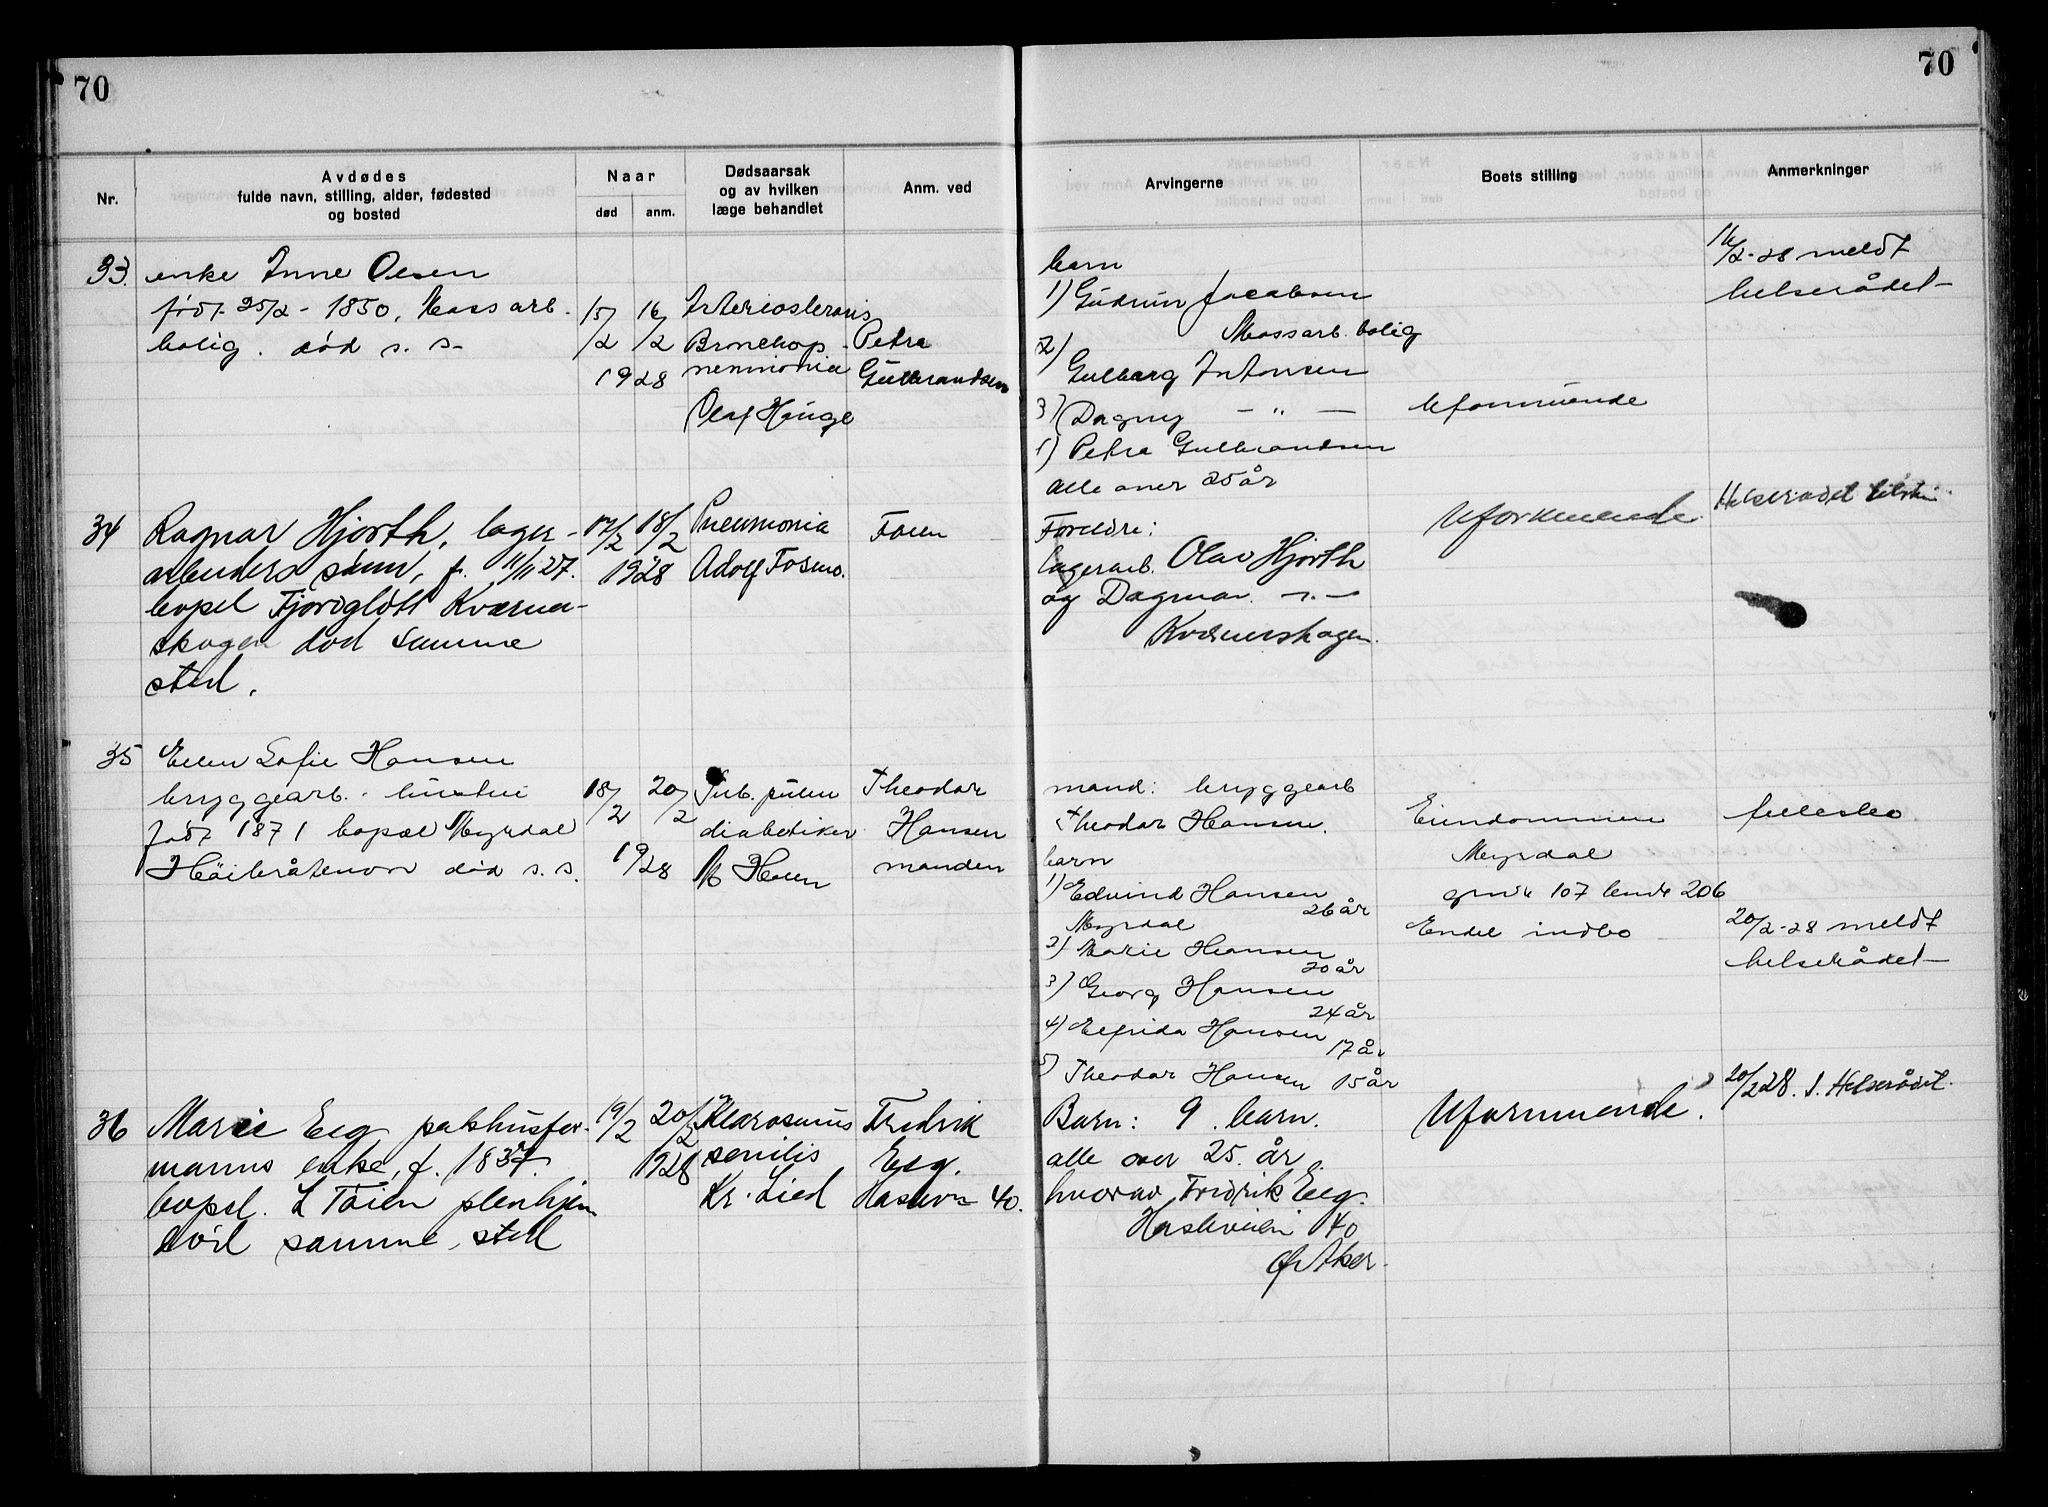 70
70
Nr.
Avdødes
fulde navn, stilling, alder, fødested
og bosted
Naar
død
anm.
Dødsaarsak
og av hvilken
læge behandlet
Anm. ved
Arvingerne
Boets stilling
Anmerkninger
33.
enke Inne Olsen
født 25/2 - 1850, Moss arb.
bolig. død s. s.
15/2 16/2
1928
Arteriosclerosis
Bronchop-
neumonia
Olaf Hauge
Petra
Gulbrandsen
barn
1) Gudrun Jacobsen
Mossarb. bolig
2)
Gulborg Antonsen
3) Dagny — " —
4) Petra Gulbrandsen
alle over 25 år
Uformuende
16/2-28 meldt
helserådet
34
Ragnar Hjorth, lager-
arbeiders sønn, f. 11/11 27.
bopel Fjordgløtt Kværner-
skogen død samme
sted.
17/2 18/2
1928
Pneumonia
Adolf Fosmo.
Faren
Foreldre:
lagerarb. Olav Hjorth
og Dagmar —"—
Kværnerskogen.
Uformuende
Helserådet
35
Ellen Sofie Hansen
bryggearb. hustru
født 1871 bopæl Myrdal
Høibråtenvn død s. s.
18/2 20/2
1928
Tub. pulm
diabetiker
Theodor
Hansen
manden
mand: bryggearb
Theodor Hansen.
barn
1) Edvind Hansen
26 år
Myrdal
2) Marie Hansen
20 år
3) Georg Hansen
24 år
4) Elfrida Hansen
17 år
5) Theodor Hansen 15 år
Eiendommen
Myrdal
gnr. 107 bnr. 206
Endel indbo
fellesbo
20/2-28 meldt
helserådet
36
Marie Eeg pakhusfor-
manns enke, f. 1837.
bopel. L Tøien pleiehjem
død samme sted
19/2 20/2
1928
Marasmus
senilis
Kr. Lied
Fredrik
Eeg.
Haslevn 40.
Barn: 9 barn.
alle over 25 år.
hvorav Fredrik Eeg.
Hasleveien 40
Ø. Aker.
Uformuende.
20/2 28. s. Helserådet.